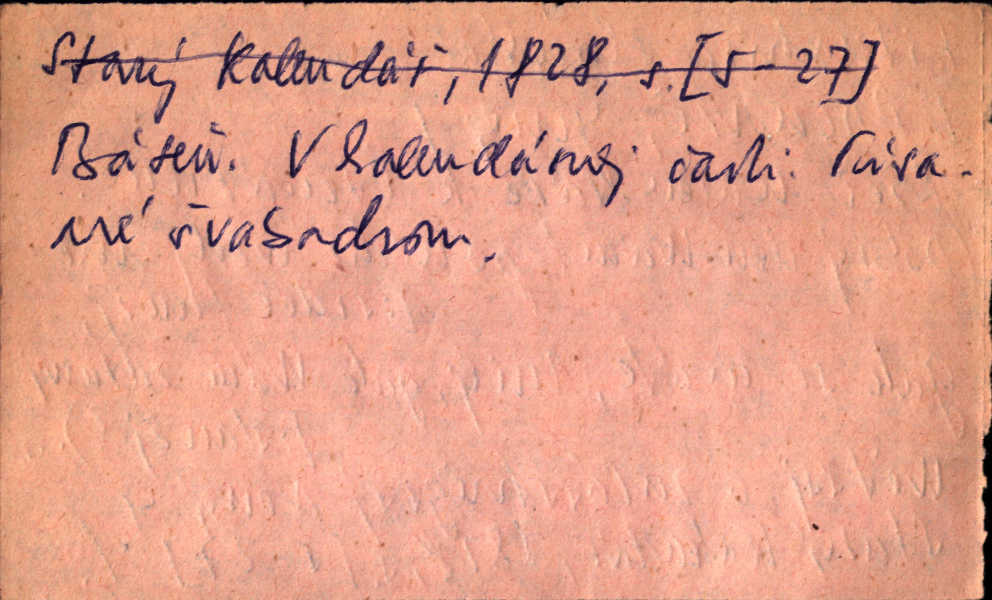 Starý kalendár, 1828, s. [5-27]
Báseň. V kalendárnej časti. Písa-
né švabachom.